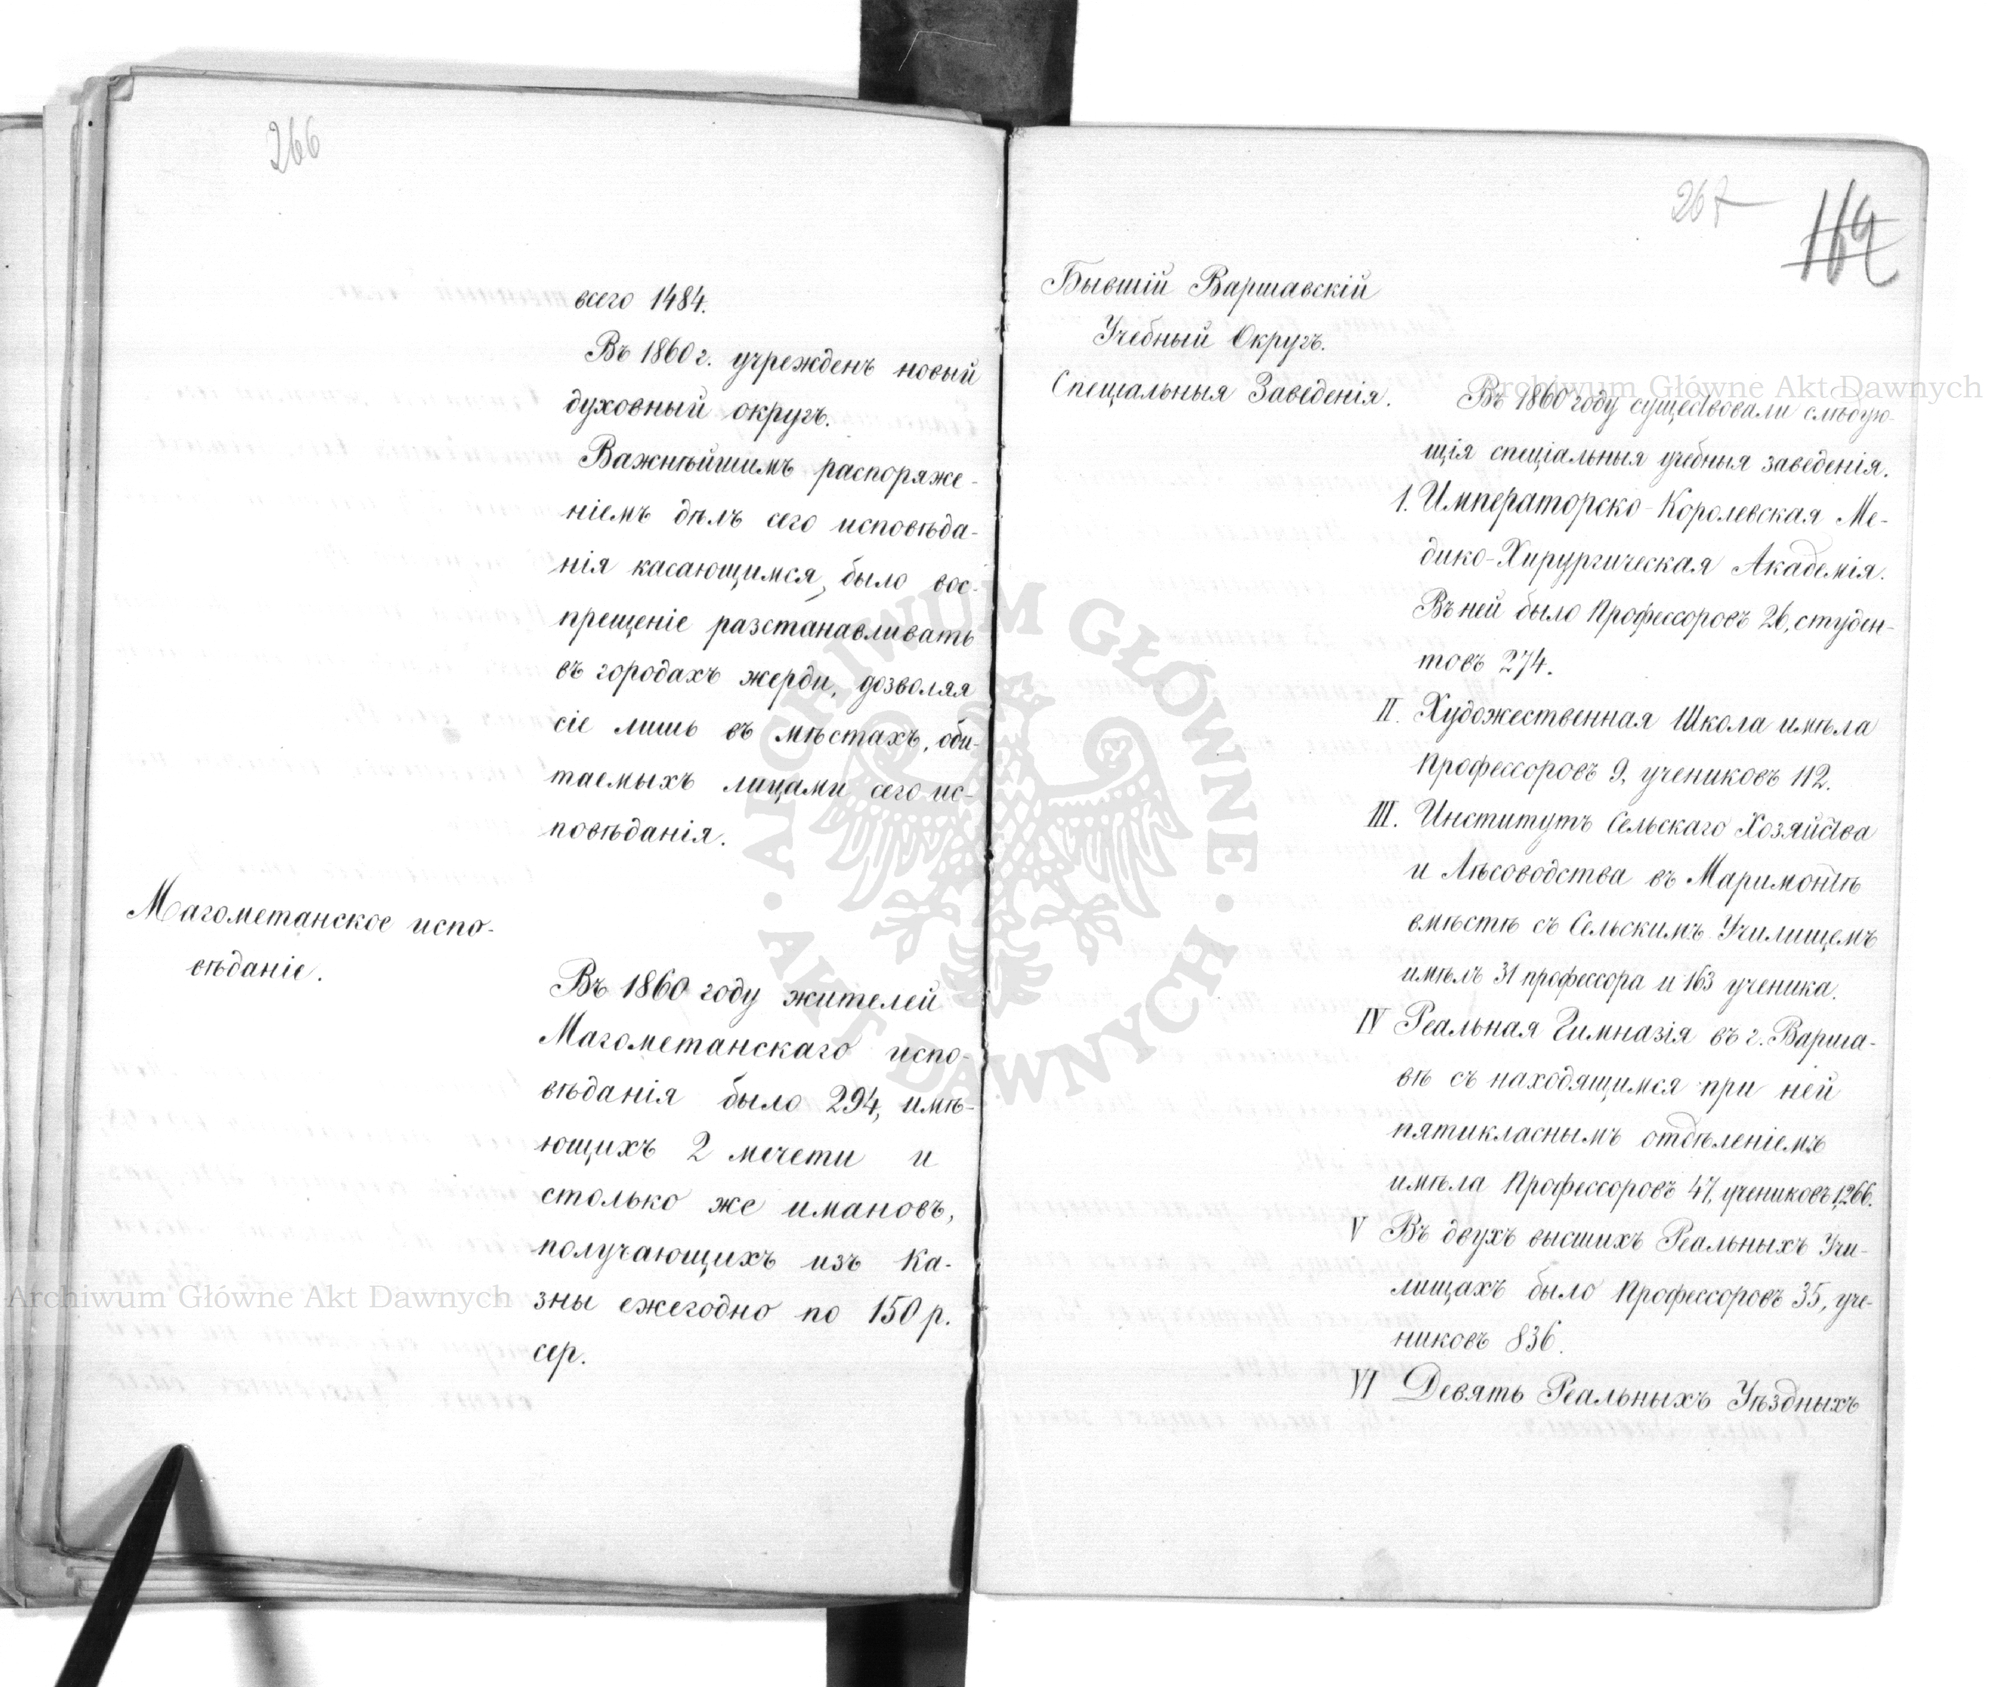 266
всего 1484.
Въ 1860 г. учрежденъ новый
духовный округъ.
Важнѣйшимъ распоряже-
ніемъ дѣлъ сего исповѣда-
нія касающимся, было вос-
прещеніе разстанавливать
въ городахъ жерди, дозволяя
сіе лишь въ мѣстахъ, оби-
таемыхъ лицами сего ис-
повѣданія.
Магометанское испо-
вѣданіе.
Въ 1860 году жителей
Магометанскаго испо-
вѣданія было 294, имѣ-
ющихъ 2 мечети и
столько же имановъ,
получающихъ изъ Ка-
зны ежегодно по 150 р.
сер.
267
169
Бывшій Варшавскій
Учебный Округъ.
Спеціальныя Заведенія.
Въ 1860 году существовали слѣдую-
щія спеціальныя учебныя заведенія.
1. Императорско-Королевская Ме-
дико-Хирургическая Академія.
Въ ней было Профессоровъ 26, студен-
товъ 274.
II. Художественная Школа имѣла
Профессоровъ 9, учениковъ 112.
III. Институтъ Сельскаго Хозяйства
и Лѣсоводства въ Маримонтѣ
вмѣстѣ съ Сельскимъ Училищемъ
имѣлъ 31 профессора и 163 ученика.
IV Реальная Гимназія въ г. Варша-
вѣ съ находящимся при ней
пятикласнымъ отдѣленіемъ
имѣла Профессоровъ 47, учениковъ 1,266.
V Въ двухъ высшихъ Реальныхъ Учи-
лищахъ было Профессоровъ 35, уче-
никовъ 836.
VI Девять Реальныхъ Уѣздныхъ
Archiwum Główne Akt Dawnych
Archiwum Główne Akt Dawnych
ARCHIWUM GŁÓWNE
AKT DAWNYCH